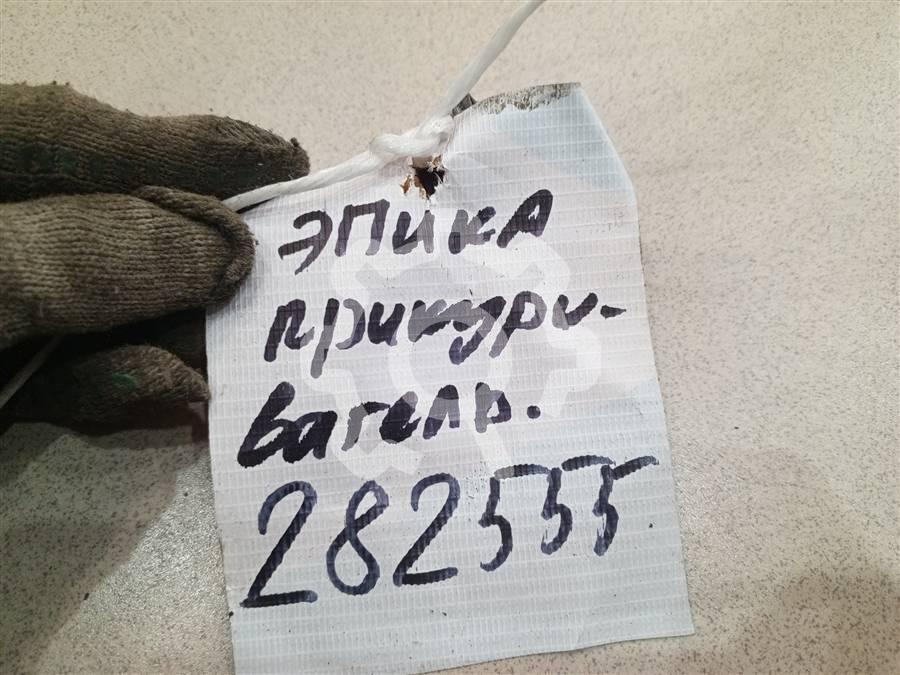 ЭПИКА
прикури-
ватель.
282555